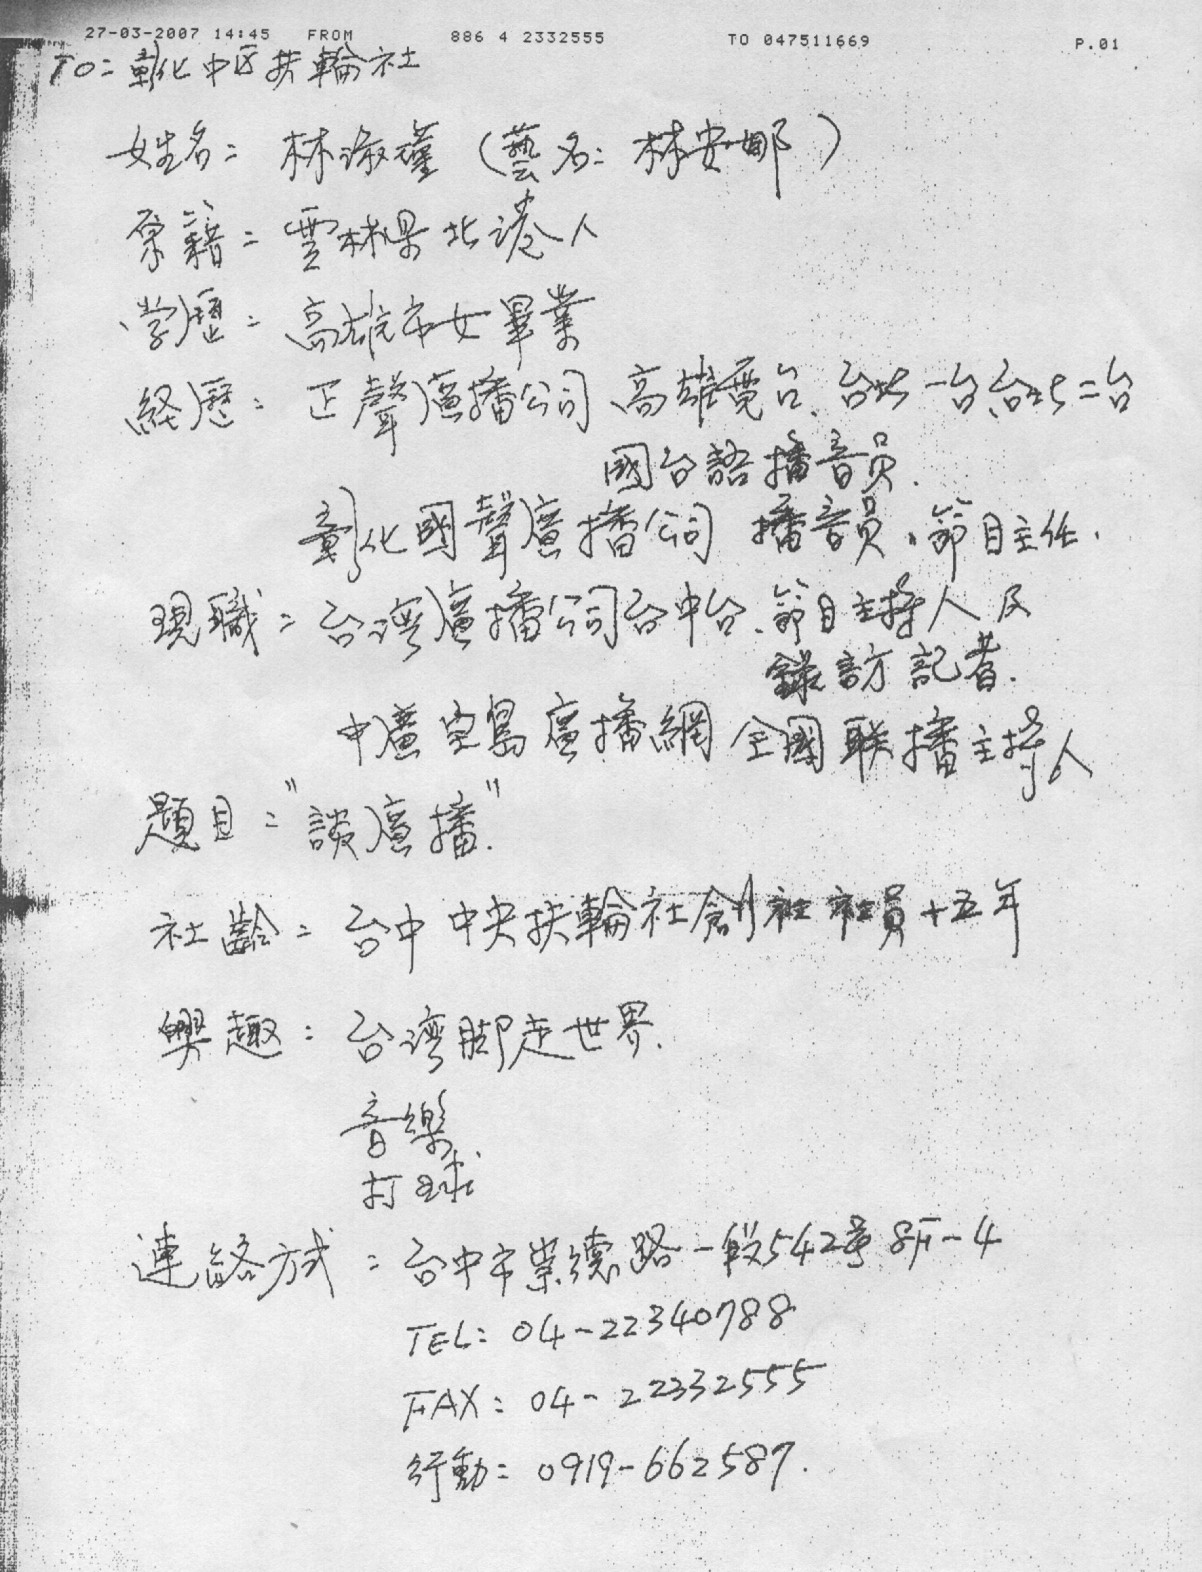 27-03-2007 14:45 FROM 886 4 2332555 TO 047511669 P.01
TO: 彰化中区扶輪社
姓名: 林淑瑾 (藝名: 林安娜)
原籍: 雲林県北港人
学歴: 高雄市女畢業
経歴: 正聲廣播公司 高雄電台、台北一台、台北二台
國台語播音员.
彰化國聲廣播公司 播音員、節目主任.
現職: 台湾廣播公司台中台、節目主持人及
錄訪記者.
中廣宝島廣播網 全國联播主持人
題目: "談廣播".
社齡: 台中中央扶輪社創社社員十五年
興趣: 台湾脚走世界.
音樂
打球
連絡方式: 台中市崇德路一段542号8F-4
TEL: 04-22340788
FAX: 04-22332555
行動: 0919-662587.